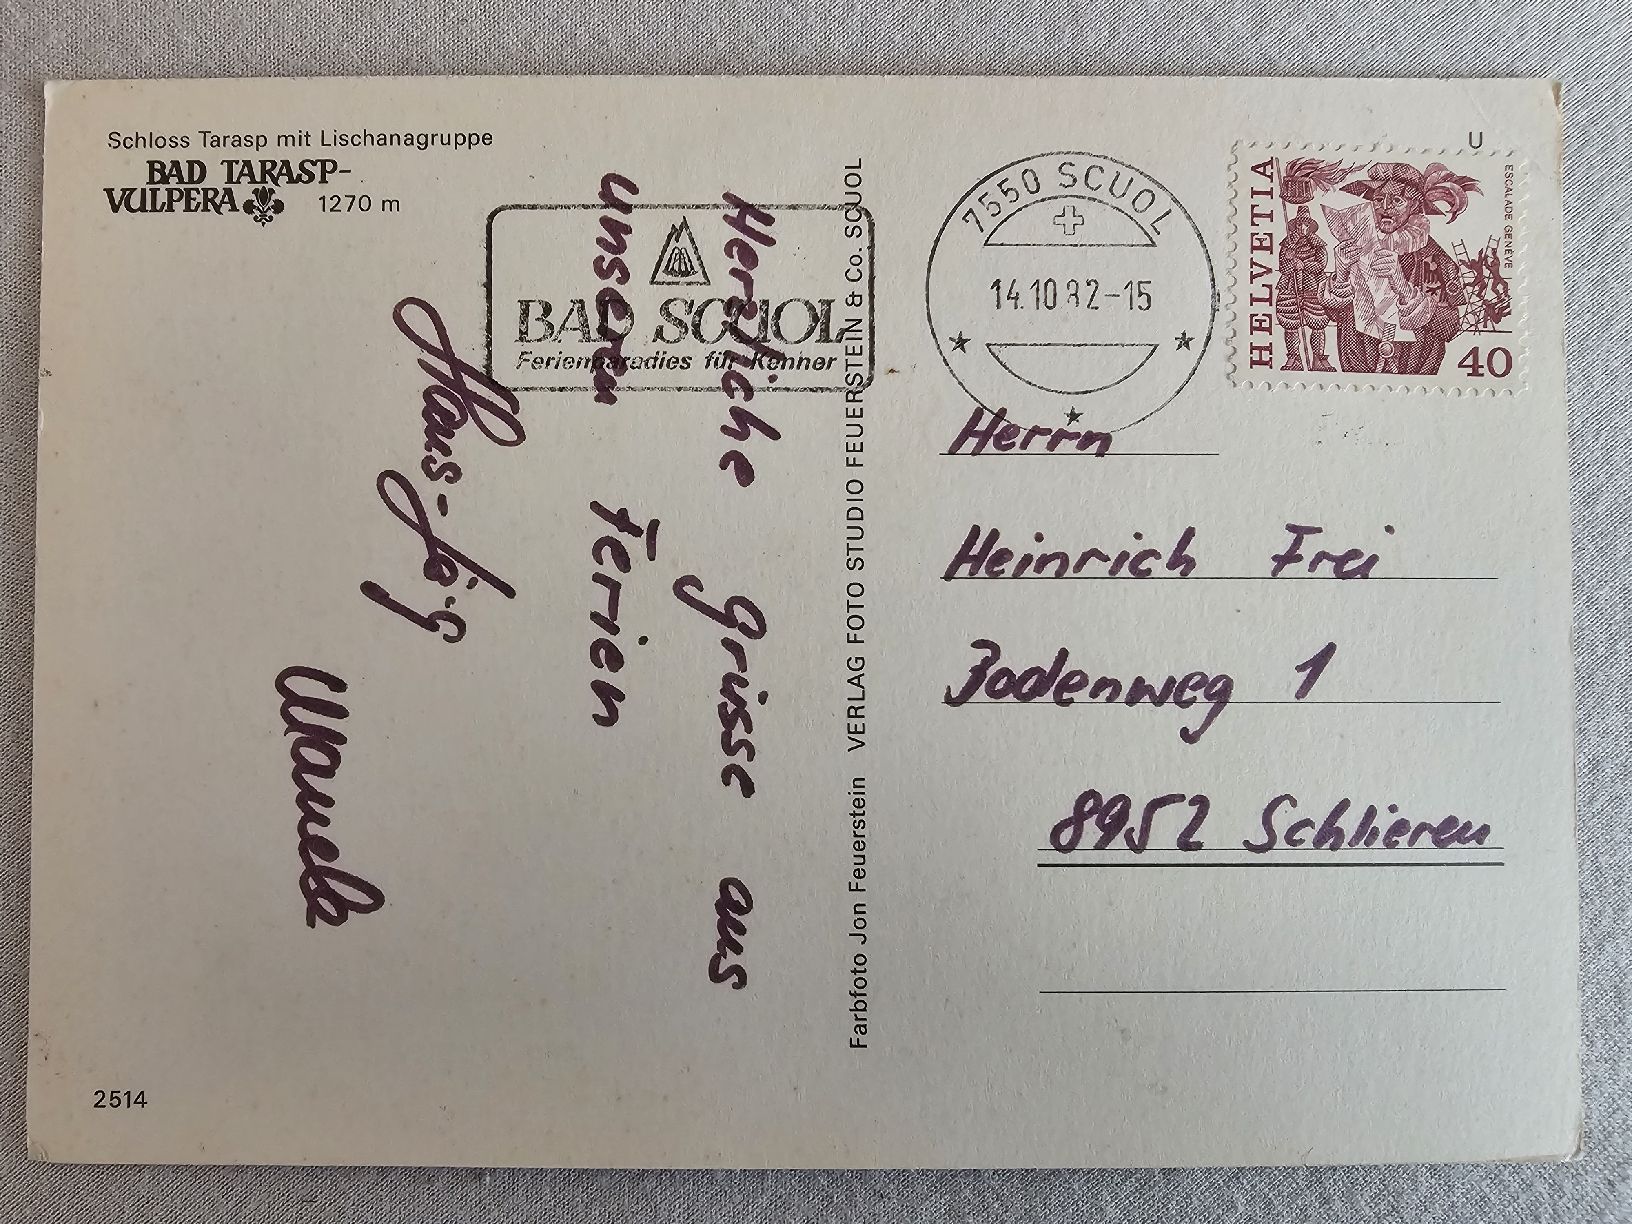 Schloss Tarasp mit Lischanagruppe
BAD TARASP-
VULPERA 1270 m
BAD SCUOL
Ferienparadies für Kenner
Herzliche Grüsse aus
unseren Ferien
Hans-Jörg
Manuela
2514
Farbfoto Jon Feuerstein VERLAG FOTO STUDIO FEUERSTEIN & Co. SCUOL
7550 SCUOL
14.10.82-15
U
HELVETIA
ESCALADE GENÈVE
40
Herrn
Heinrich Frei
Bodenweg 1
8952 Schlieren